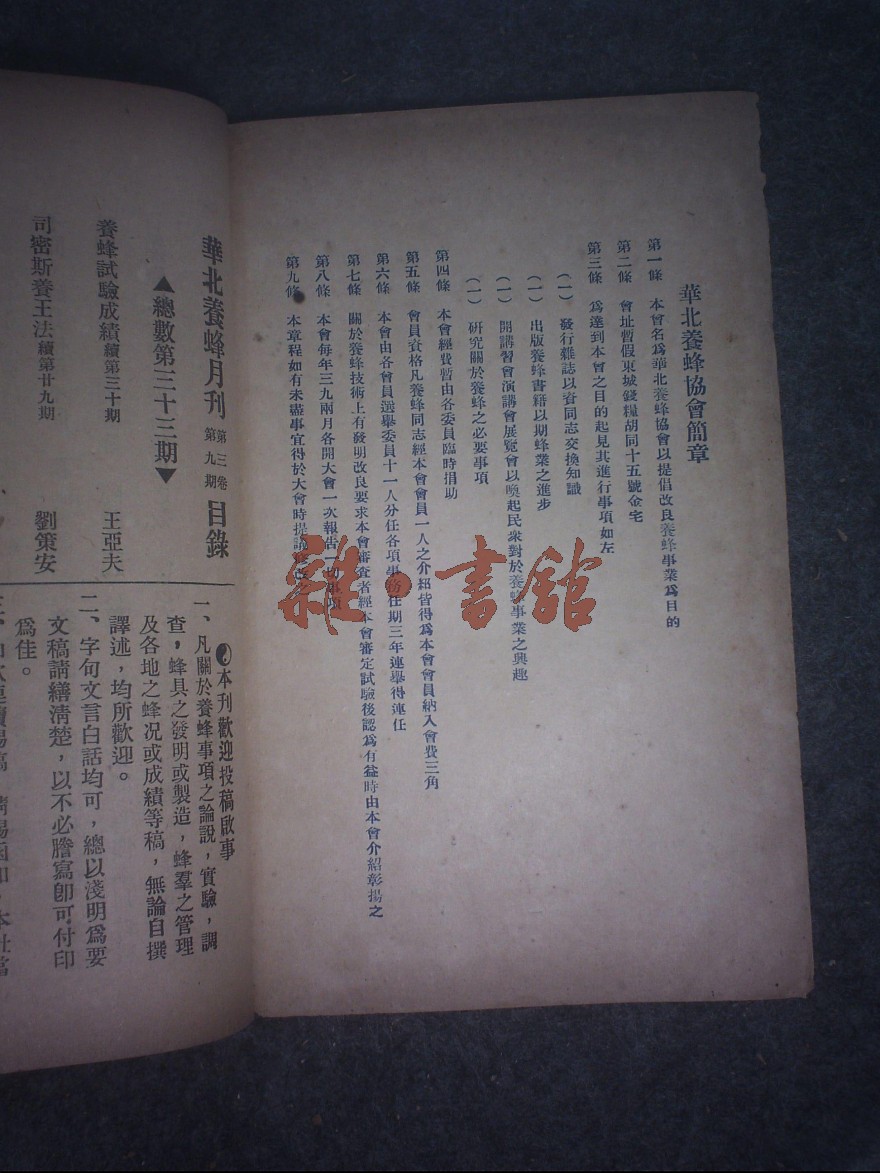 華北養蜂協會簡章
第一條 本會名爲華北養蜂協會以提倡改良養蜂事業爲目的
第二條 會址暫假東城錢糧胡同十五號金宅
第三條 爲達到本會之目的起見其進行事項如左
(一) 發行雜誌以資同志交換知識
(一) 出版養蜂書籍以期蜂業之進步
(一) 開講習會演講會展覽會以喚起民衆對於養蜂事業之興趣
(一) 研究關於養蜂之必要事項
第四條 本會經費暫由各委員臨時捐助
第五條 會員資格凡養蜂同志經本會會員一人之介紹皆得爲本會會員納入會費三角
第六條 本會由各會員選舉委員十一人分任各項事務任期三年連舉得連任
第七條 關於養蜂技術上有發明改良要求本會審査者經本會審定試驗後認爲有益時由本會介紹彰揚之
第八條 本會每年三九兩月各開大會一次報告一切事項
第九條 本章程如有未盡事宜得於大會時提議
雜·書館
華北養蜂月刊 第三卷 第九期 目錄
▲總數第三十三期▼
養蜂試驗成績 續第三十期 王亞夫
司密斯養王法 續第廿九期 劉策安
本刊歡迎投稿啟事
一、凡關於養蜂事項之論說，實驗，調
查，蜂具之發明或製造，蜂羣之管理
及各地之蜂況或成績等稿，無論自撰
譯述，均所歡迎。
二、字句文言白話均可，總以淺明爲要
文稿請繕清楚，以不必謄寫卽可付印
爲佳。